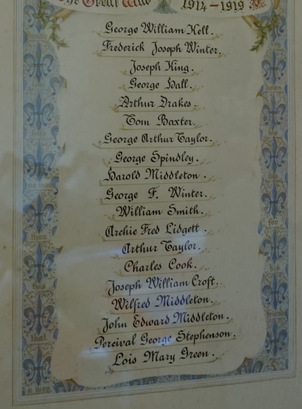 The Great War 1914–1919
George William Kell.
Frederick Joseph Winter.
Joseph King.
George Hall.
Arthur Drakes.
Tom Baxter.
George Arthur Taylor.
George Spindley.
Harold Middleton.
George F. Winter.
William Smith.
Archie Fred Lidgett.
Arthur Taylor.
Charles Cook.
Joseph William Croft.
Wilfred Middleton.
John Edward Middleton.
Percival George Stephenson.
Lois Mary Green.